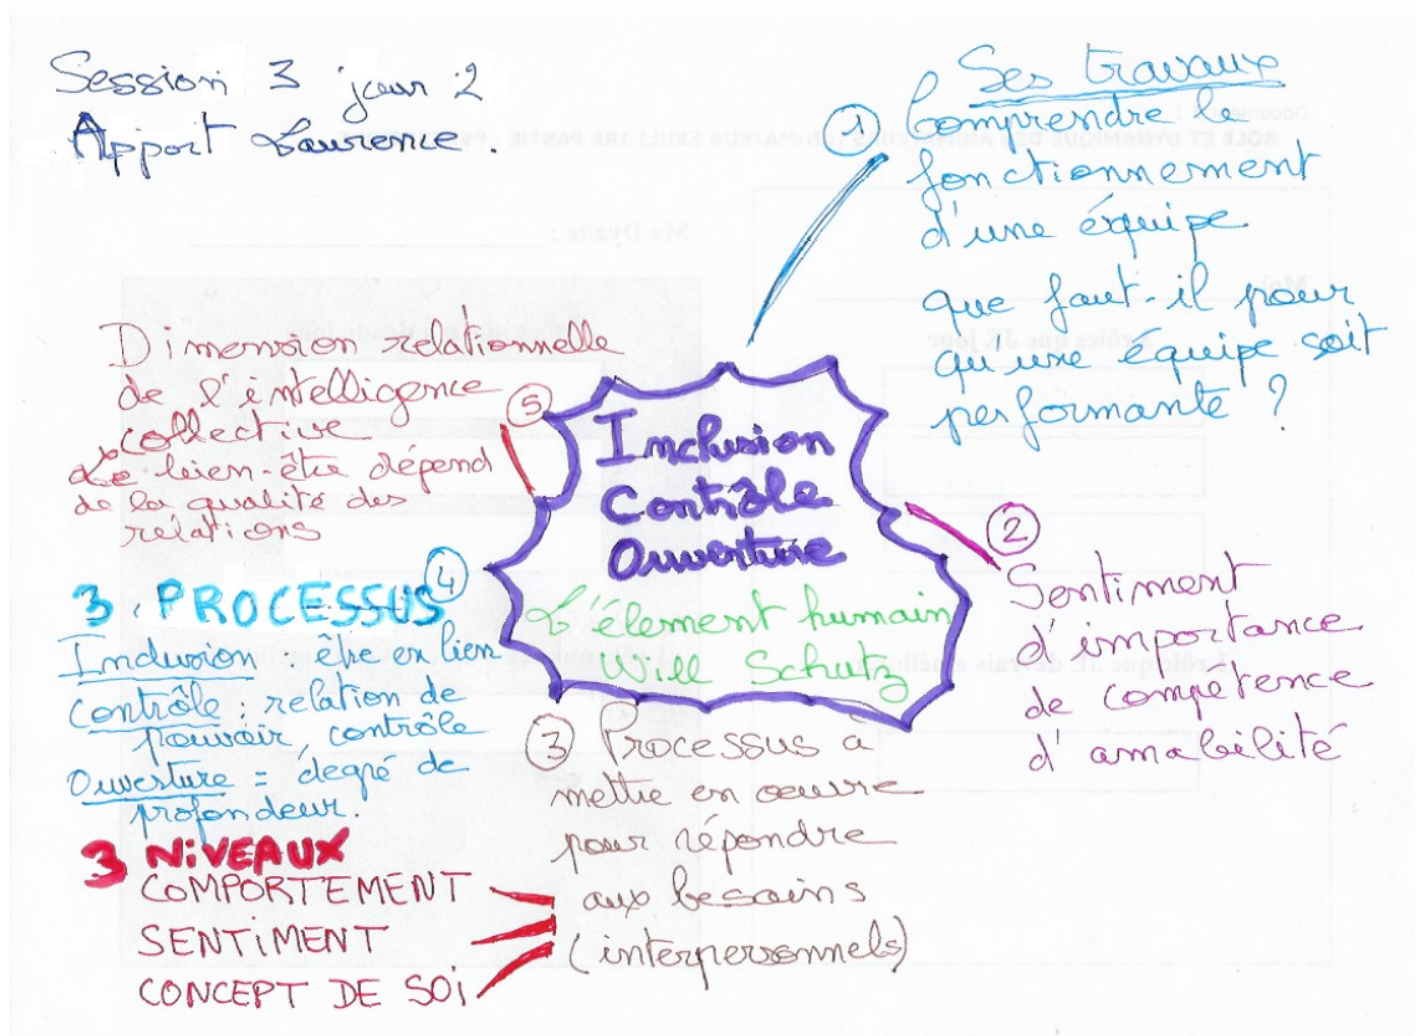 Session 3 jour 2
Apport Laurence.
Ses travaux
① Comprendre le
fonctionnement
d'une équipe
que faut-il pour
qu'une équipe soit
performante ?
Inclusion
Contrôle
Ouverture
L'élément humain
Will Schutz
②
Sentiment
d'importance
de compétence
d'amabilité
③ Processus à
mettre en œuvre
pour répondre
aux besoins
(interpersonnels)
④
3 PROCESSUS
Inclusion être en lien
Contrôle : relation de
pouvoir, contrôle
Ouverture = degré de
profondeur.
3 NiVEAUX
COMPORTEMENT
SENTiMENT
CONCEPT DE SOi
⑤
Dimension relationnelle
de l'intelligence
collective
Le bien-être dépend
de la qualité des
relations